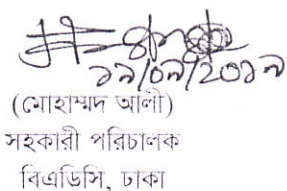 ১৯/০৯/২০১৯
(মোহাম্মদ আলী)
সহকারী পরিচালক
বিএডিসি, ঢাকা